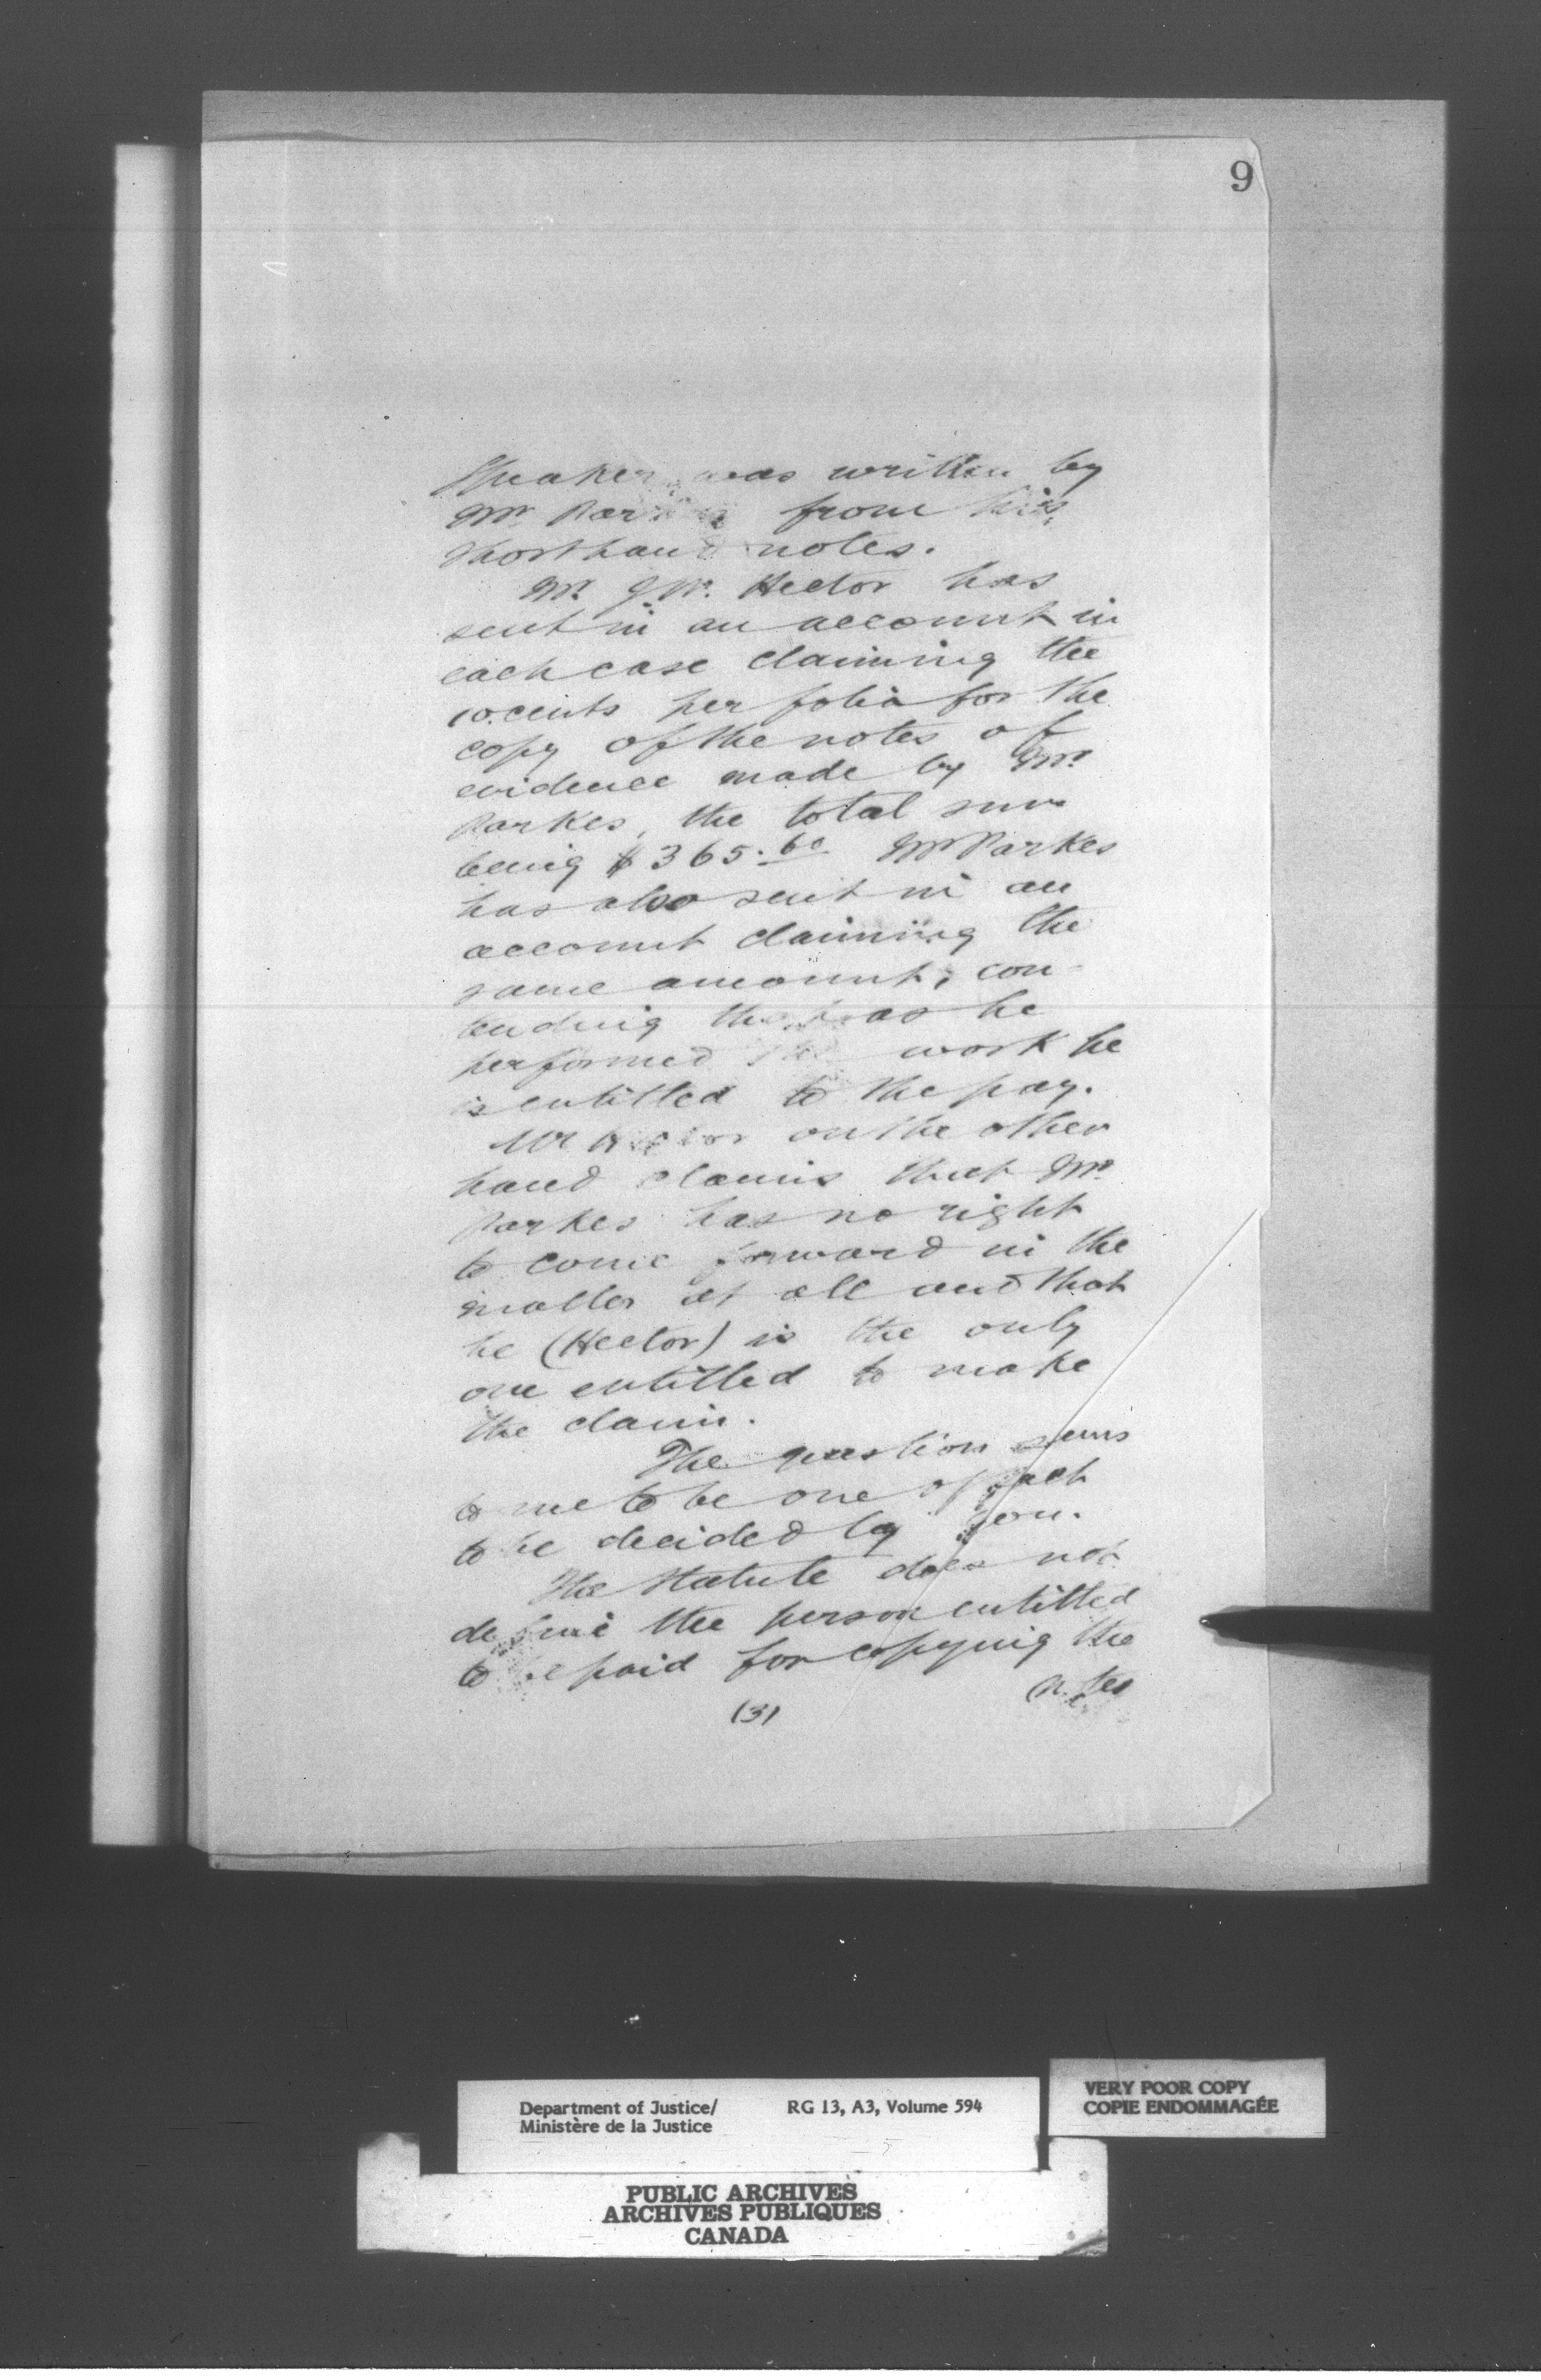 9
Speaker was written by
Mr. Parkes from his
shorthand notes.
Mr. J. W. Hector has
sent in an account in
each case claiming the
10 cents per folio for the
copy of the notes of
evidence made by Mr.
Parkes, the total sum
being $365.60 Mr Parkes
has also sent in an
account claiming the
same amount, con-
tending that as he
performed the work he
is entitled to the pay.
Mr Hector on the other
hand claims that Mr.
Parkes has no right
to come forward in the
matter at all and that
he (Hector) is the only
one entitled to make
the claim.
The question seems
to me to be one of fact
to be decided by you.
The Statute does not
define the person entitled
to be paid for copying the
(notes
(3)
Department of Justice/ RG 13, A3, Volume 594
Ministère de la Justice
VERY POOR COPY
COPIE ENDOMMAGÉE
PUBLIC ARCHIVES
ARCHIVES PUBLIQUES
CANADA